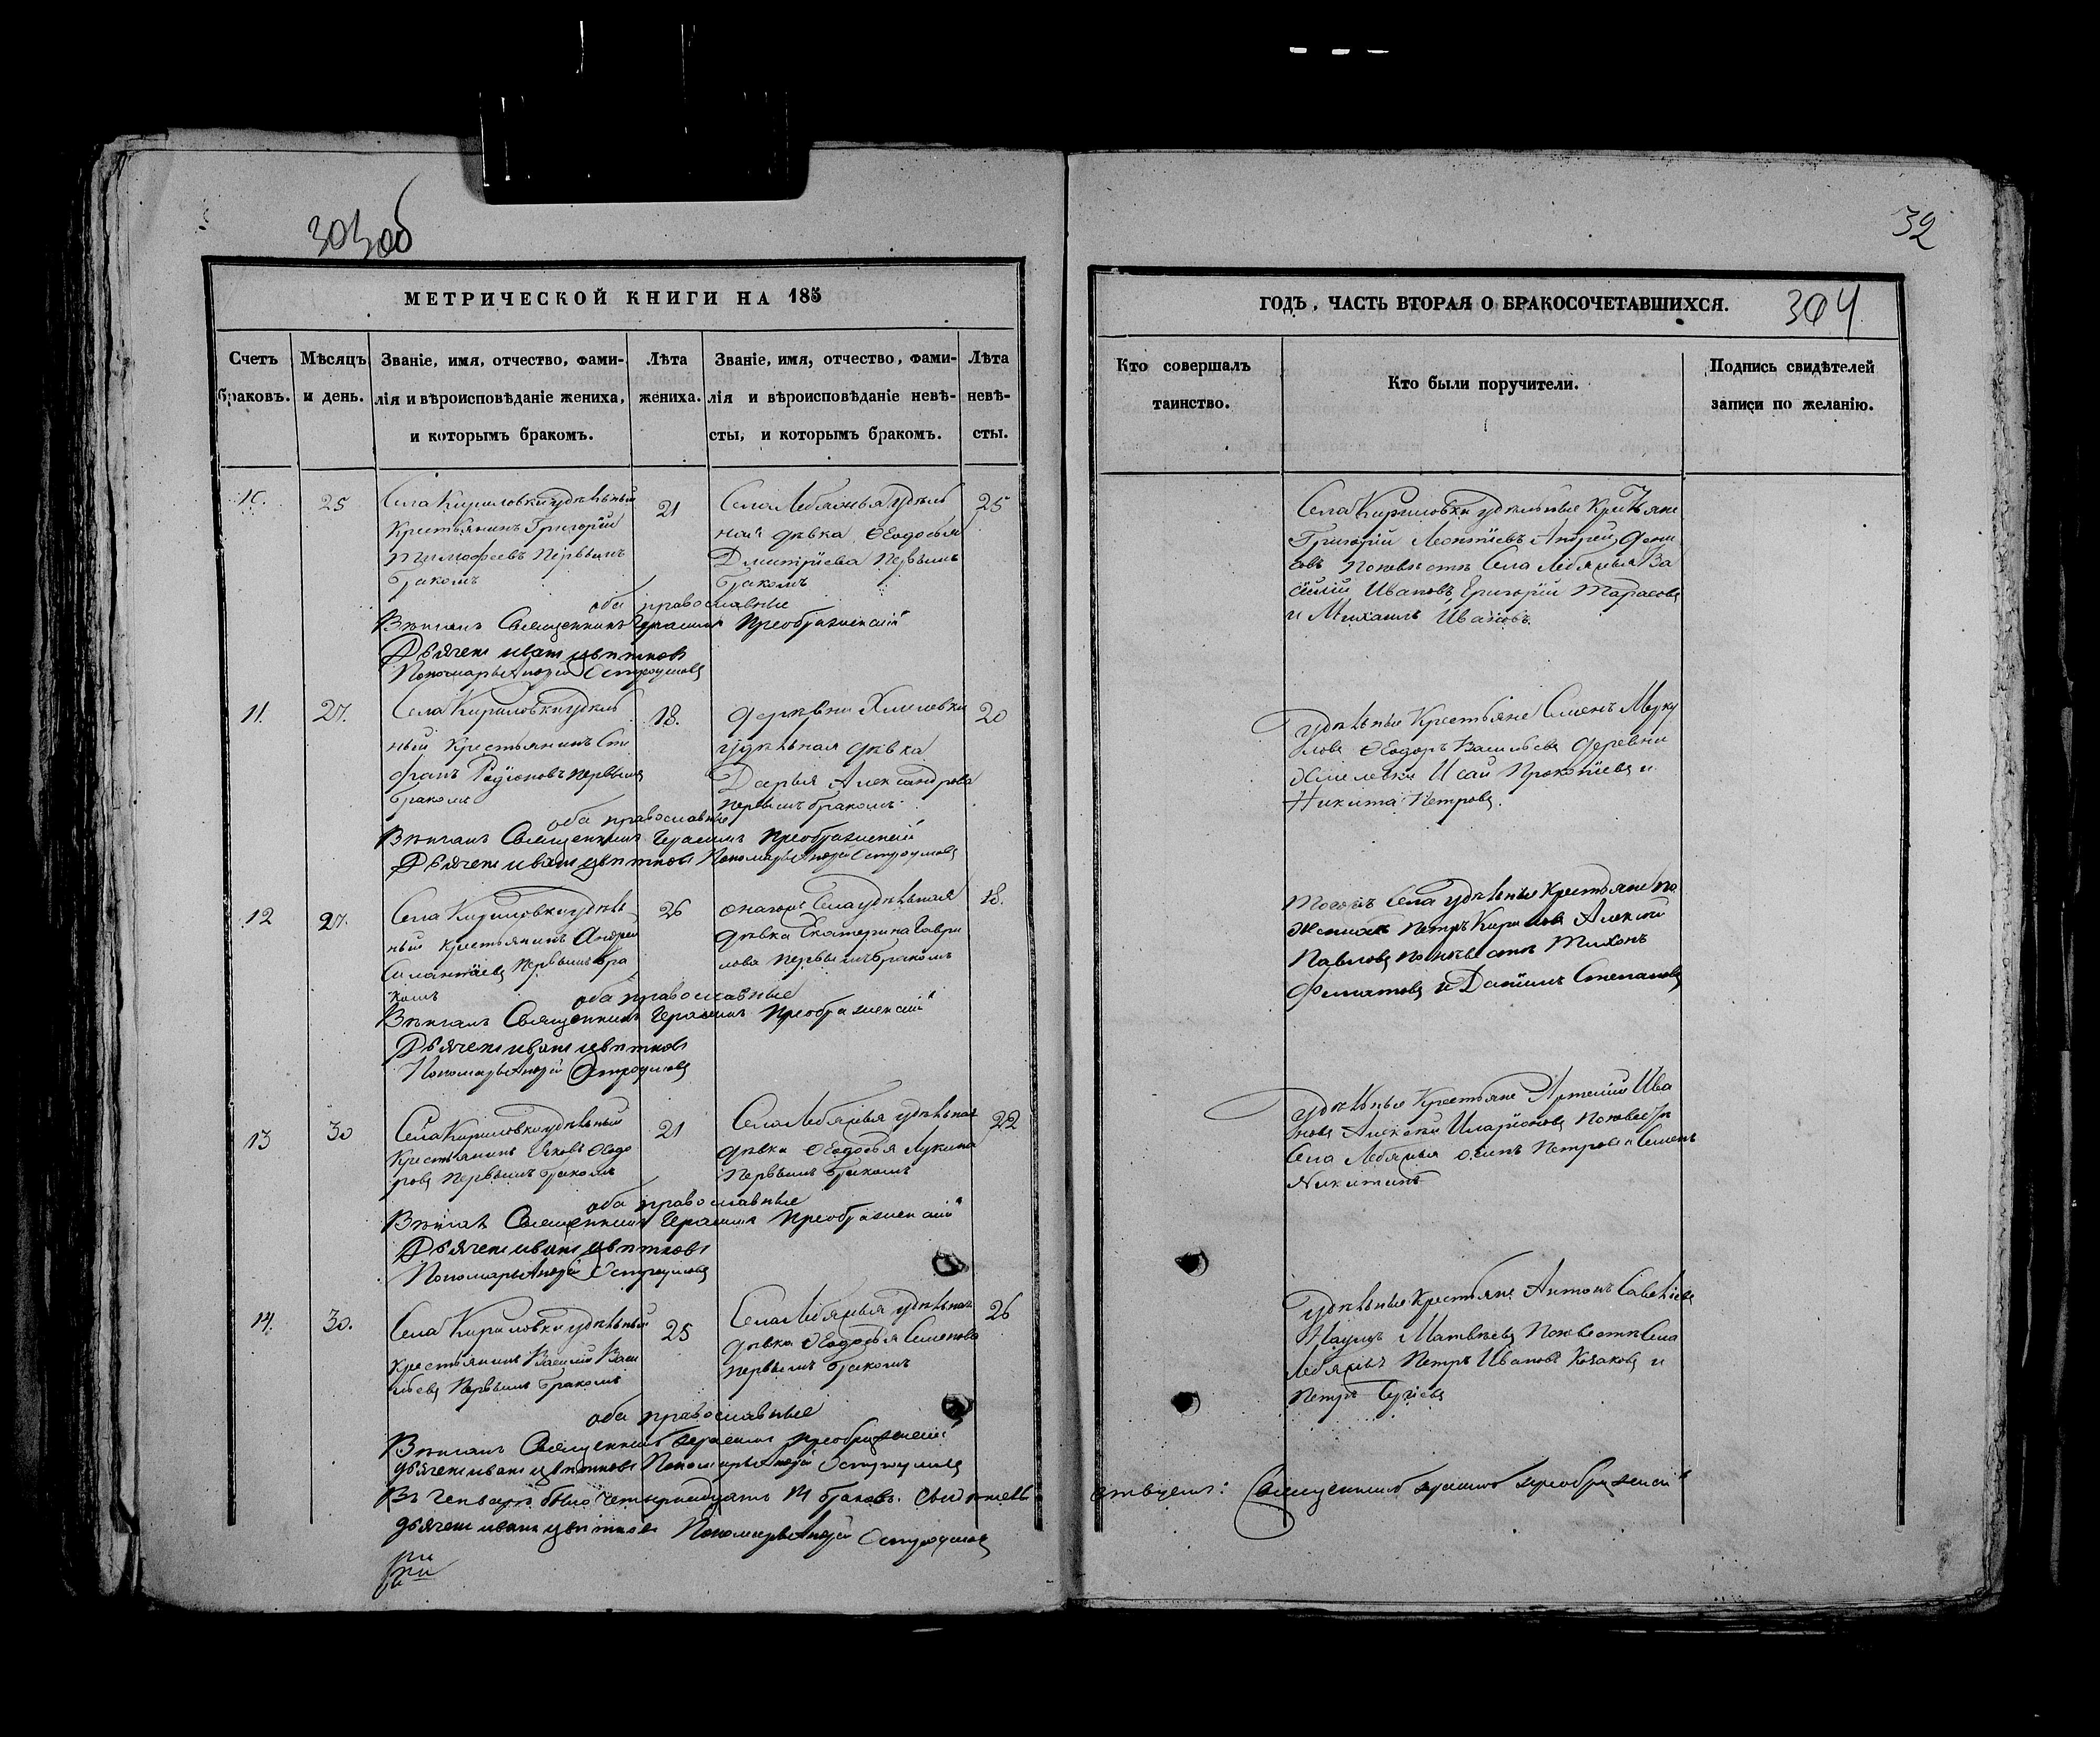 303об
МЕТРИЧЕСКОЙ КНИГИ НА 185
Счетъ браковъ.
Мѣсяцъ и день.
Званіе, имя, отчество, фами-
лія и вѣроисповѣданіе жениха,
и которымъ бракомъ.
Лѣта жениха.
Званіе, имя, отчество, фами-
лія и вѣроисповѣданіе невѣ-
сты, и которымъ бракомъ.
Лѣта невѣ-
сты.
25
Села Кириловки удѣльный
крестьянинъ Григорій
Тимофеевъ первымъ
бракомъ
21
Села Лебяжья удѣль
ная дѣвка Ѳеодосья
Дмитріева первымъ
бракомъ
25
оба православные
Вѣнчалъ Священникъ Герасимъ Преображенскій
Дьячекъ Иванъ Цвѣтковъ
Пономарь Андрей Остроумовъ
11.
27.
Села Кириловки удѣль
ный крестьянинъ Сте
фанъ Родіоновъ первымъ
бракомъ
18.
деревни Хмелевки
удѣльная дѣвка
Дарья Александрова
первымъ бракомъ
20
оба православные
Вѣнчалъ Священникъ Герасимъ Преображенскій
Дьячекъ Иванъ Цвѣтковъ Пономарь Андрей Остроумовъ
12
27.
Села Кириловки удѣль
ный крестьянинъ Андрей
Силантіевъ первымъ бра
комъ
26
Села удѣльная
дѣвка Екатерина Гаври
лова первымъ бракомъ
18.
оба православные
Вѣнчалъ Священникъ Герасимъ Преображенскій
Дьячекъ Иванъ Цвѣтковъ
Пономарь Андрей Остроумовъ
13
30
Села Кириловки удѣльный
крестьянинъ Яковъ Ѳедо
ровъ первымъ бракомъ
21
Села Лебяжья удѣльная
дѣвка Ѳеодосья Лукина
первымъ бракомъ
22
оба православные
Вѣнчалъ Священникъ Герасимъ Преображенскій
Дьячекъ Иванъ Цвѣтковъ
Пономарь Андрей Остроумовъ
14.
30.
Села Кириловки удѣльный
крестьянинъ Василій Васи
льевъ первымъ бракомъ
25
Села Лебяжья удѣльная
дѣвка Ѳеодосья Семенова
первымъ бракомъ
26
оба православные
Вѣнчалъ Священникъ Герасимъ Преображенскій
дьячекъ Иванъ Цвѣтковъ Пономарь Андрей Остроумовъ
Въ Генварѣ было четырнадцать 14 браковъ. Свидѣтель
дьячекъ Иванъ Цвѣтковъ Пономарь Андрей Остроумовъ
32
ГОДЪ, ЧАСТЬ ВТОРАЯ О БРАКОСОЧЕТАВШИХСЯ.
304
Кто совершалъ
таинство.
Кто были поручители.
Подпись свидѣтелей
записи по желанію.
Села Кириловки удѣльные крестьяне
Григорій Леонтіевъ Андрей Дени
совъ по невѣстѣ Села Лебяжья Ва
силій Ивановъ, Григорій Тарасовъ
и Михаилъ Ивановъ.
удѣльные крестьяне Семенъ Мерку
ловъ Ѳеодоръ Васильевъ деревни
Хмелевки Исай Прокопіевъ и
Никита Петровъ.
Тогожъ Села удѣльные крестьяне по
женихѣ Петръ Кириловъ Алексѣй
Павловъ по невѣстѣ Тихонъ
Филатовъ и Даніилъ Степановъ
удѣльные крестьяне Артемій Ива
новъ Алексѣй Иларіоновъ по невѣстѣ
Села Лебяжья Осипъ Петровъ и Семенъ
Никитинъ
удѣльные крестьяне Антонъ Савельевъ
Наумъ Матвѣевъ по невѣстѣ Села
Лебяжья Петръ Ивановъ Козаковъ и
Петръ Сергіевъ
ствуемъ: Священникъ Герасимъ Преображенскій